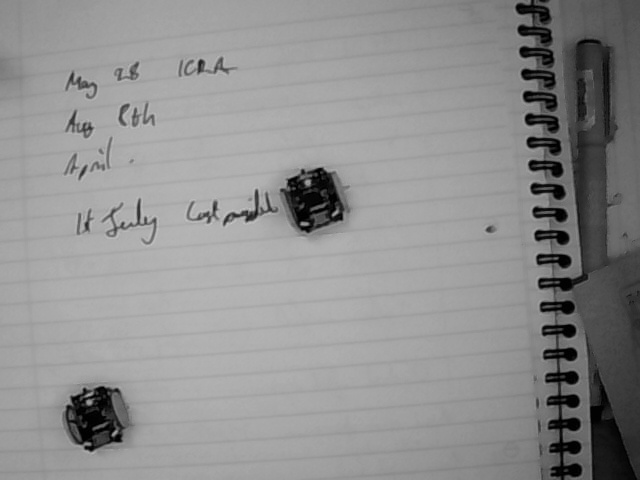 May 28 ICRA
Aug 8th
April .
1st July Last possible